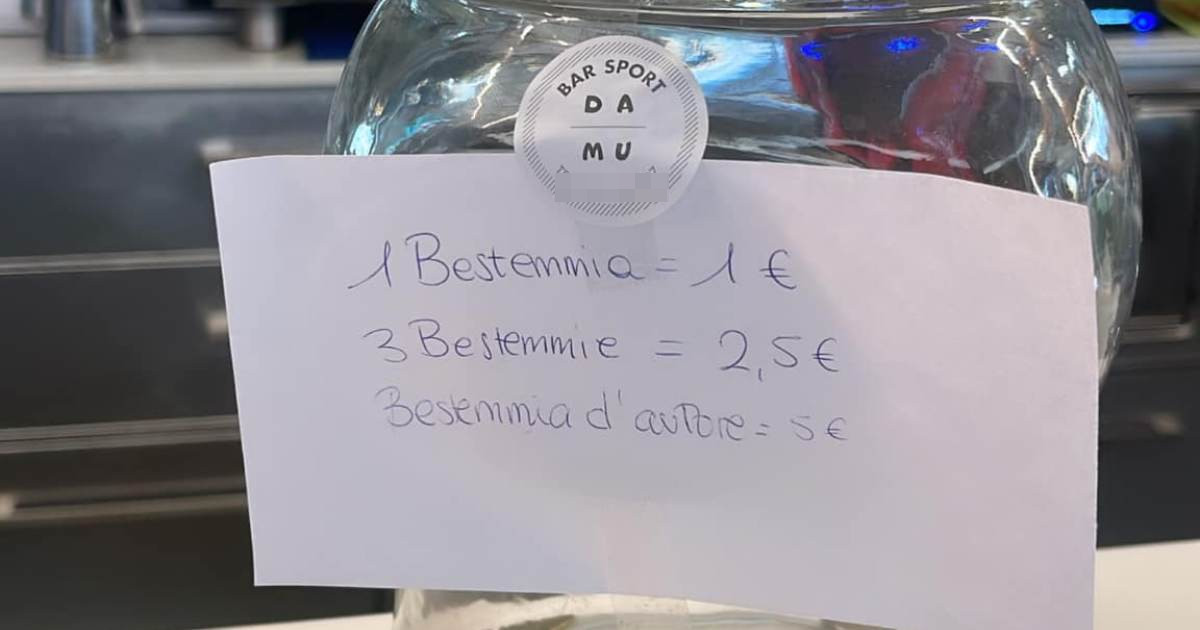 BAR SPORT
DA
MU
1 Bestemmia = 1 €
3 Bestemmie = 2,5 €
Bestemmia d'autore = 5 €